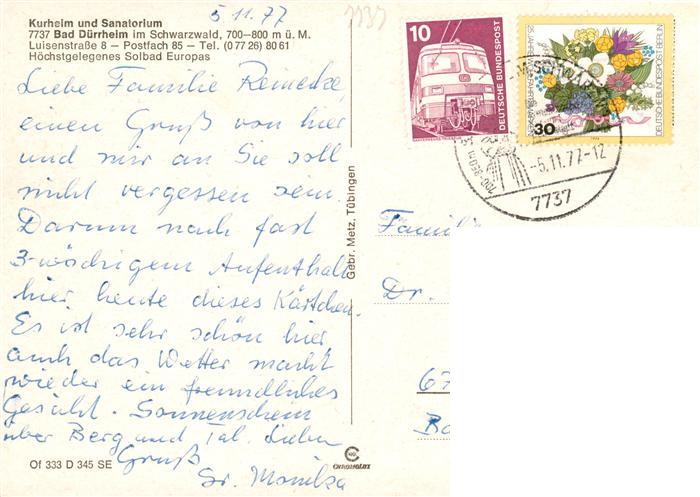 Kurheim und Sanatorium
7737 Bad Dürrheim im Schwarzwald, 700–800 m ü. M.
Luisenstraße 8 – Postfach 85 – Tel. (0 77 26) 80 61
Höchstgelegenes Solbad Europas
5.11.77
7737
Liebe Familie Reinecke,
einen Gruß von hier
und mir an Sie soll
nicht vergessen sein.
Darum nach fast
3-wöchigem Aufenthalt
hier heute dieses Kärtchen.
Es ist sehr schön hier
auch das Wetter macht
wieder ein freundliches
Gesicht. Sonnenschein
über Berg und Tal. Lieben
Gruß
Sr. Monika
Of 333 D 345 SE
Gebr. Metz, Tübingen
CHROMOLUX
10
DEUTSCHE BUNDESPOST
30
DEUTSCHE BUNDESPOST BERLIN
-5.11.77-12
7737
Famil
Dr.
67
Ba